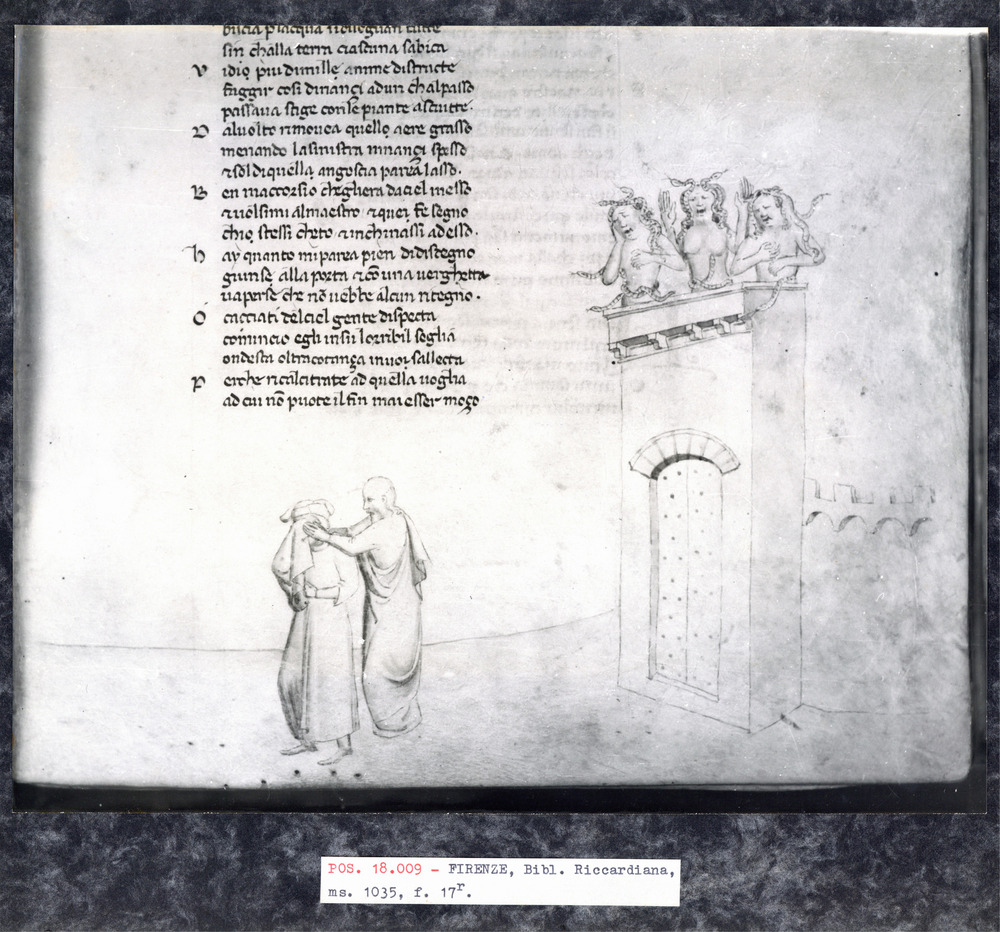 biscia p lacqua si dileguan tutte
sin challa terra ciascuna sabica
V idio piu dimille anime distructe
fuggir cosi dinançi adun chalpasso
passaua stige conse piante asciutte.
D aluolto rimouea quello aere grasso
menando lasinistra innançi spesso
⁊ sol diquella angoscia parea lasso.
B en maccorsio chegliera daciel messo
⁊ uolsimi almaestro ⁊ quei fe segno
chio stessi cheto ⁊ inchinassi adesso.
h ay quanto mi parea pien didisdegno
giunse alla porta ⁊ cō una verghetta
uaperse che nō uebbe alcun ritegno.
O cacciati delciel gente dispecta
cominciò egli insu lorribil soglia
ondesta oltracotança inuoi sallecta
P erche ricalcitrate ad quella uoglia
ad cui nō puote il fin mai esser moço
POS. 18.009 - FIRENZE, Bibl. Riccardiana,
ms. 1035, f. 17r.